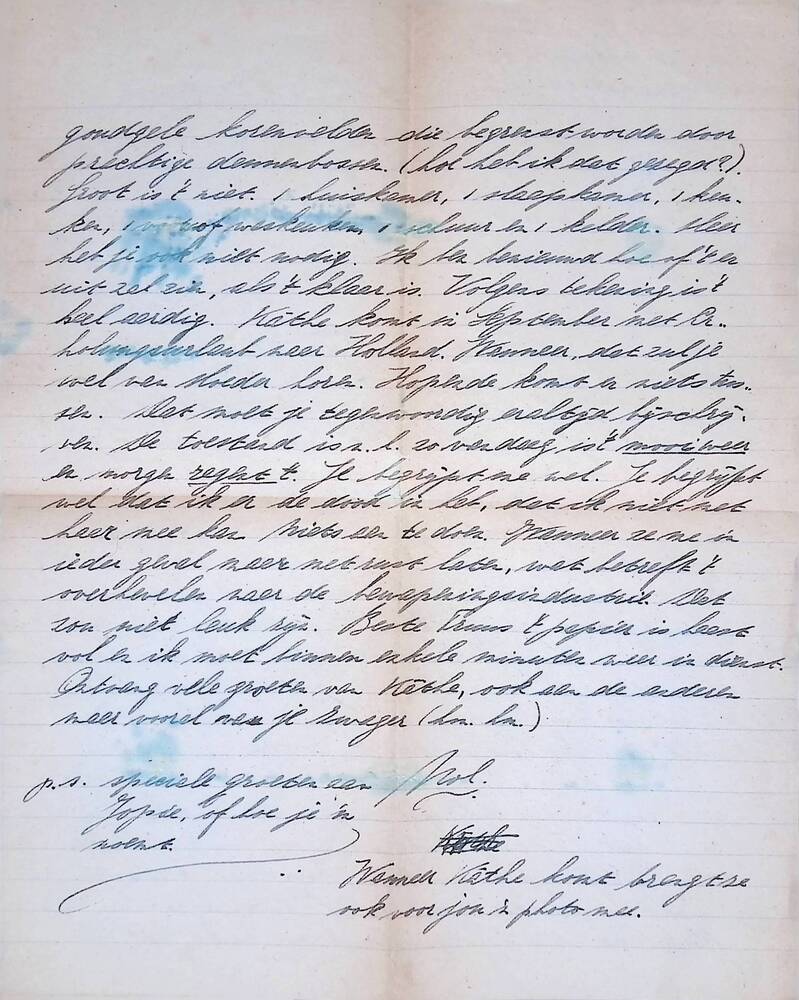 goudgele korenvelden die begrenst worden door
prachtige dennenbossen. (hoe heb ik dat gezegd?).
Groot is 't niet. 1 huiskamer, 1 slaapkamer, 1 keu-
ken, 1 voorhof waskeuken, 1 schuur en 1 kelder. Meer
heb je ook niet nodig. Ik ben benieuwd hoe of 't er
uit zal zien, als 't klaar is. Volgens tekening is 't
heel aardig. Käthe komt in September met Er-
holungsurlaub naar Holland. Wanneer, dat zul je
wel van Moeder horen. Hopende komt er niets tus-
sen. Dat moet je tegenwoordig er altijd bijschrij-
ven. De toestand is n.l. zo vandaag is 't mooi weer
en morgen regent 't. Je begrijpt me wel. Je begrijpt
wel dat ik er de dood in heb, dat ik niet met
haar mee kan. Niets aan te doen. Wanneer ze me in
ieder geval maar met rust laten, wat betreft 't
overhevelen naar de bewapeningsindustrie. Dat
zou niet leuk zijn. Beste Truus 't papier is haast
vol en ik moet binnen enkele minuten weer in dienst.
Ontvang vele groeten van Käthe, ook aan de anderen
maar vooral van je zwager (hm. hm.)
Nol.
p.s. speciale groeten aan
Jopie, of hoe je 'm
noemt.
Wanneer Käthe komt brengt ze
ook voor jou 'n photo mee.